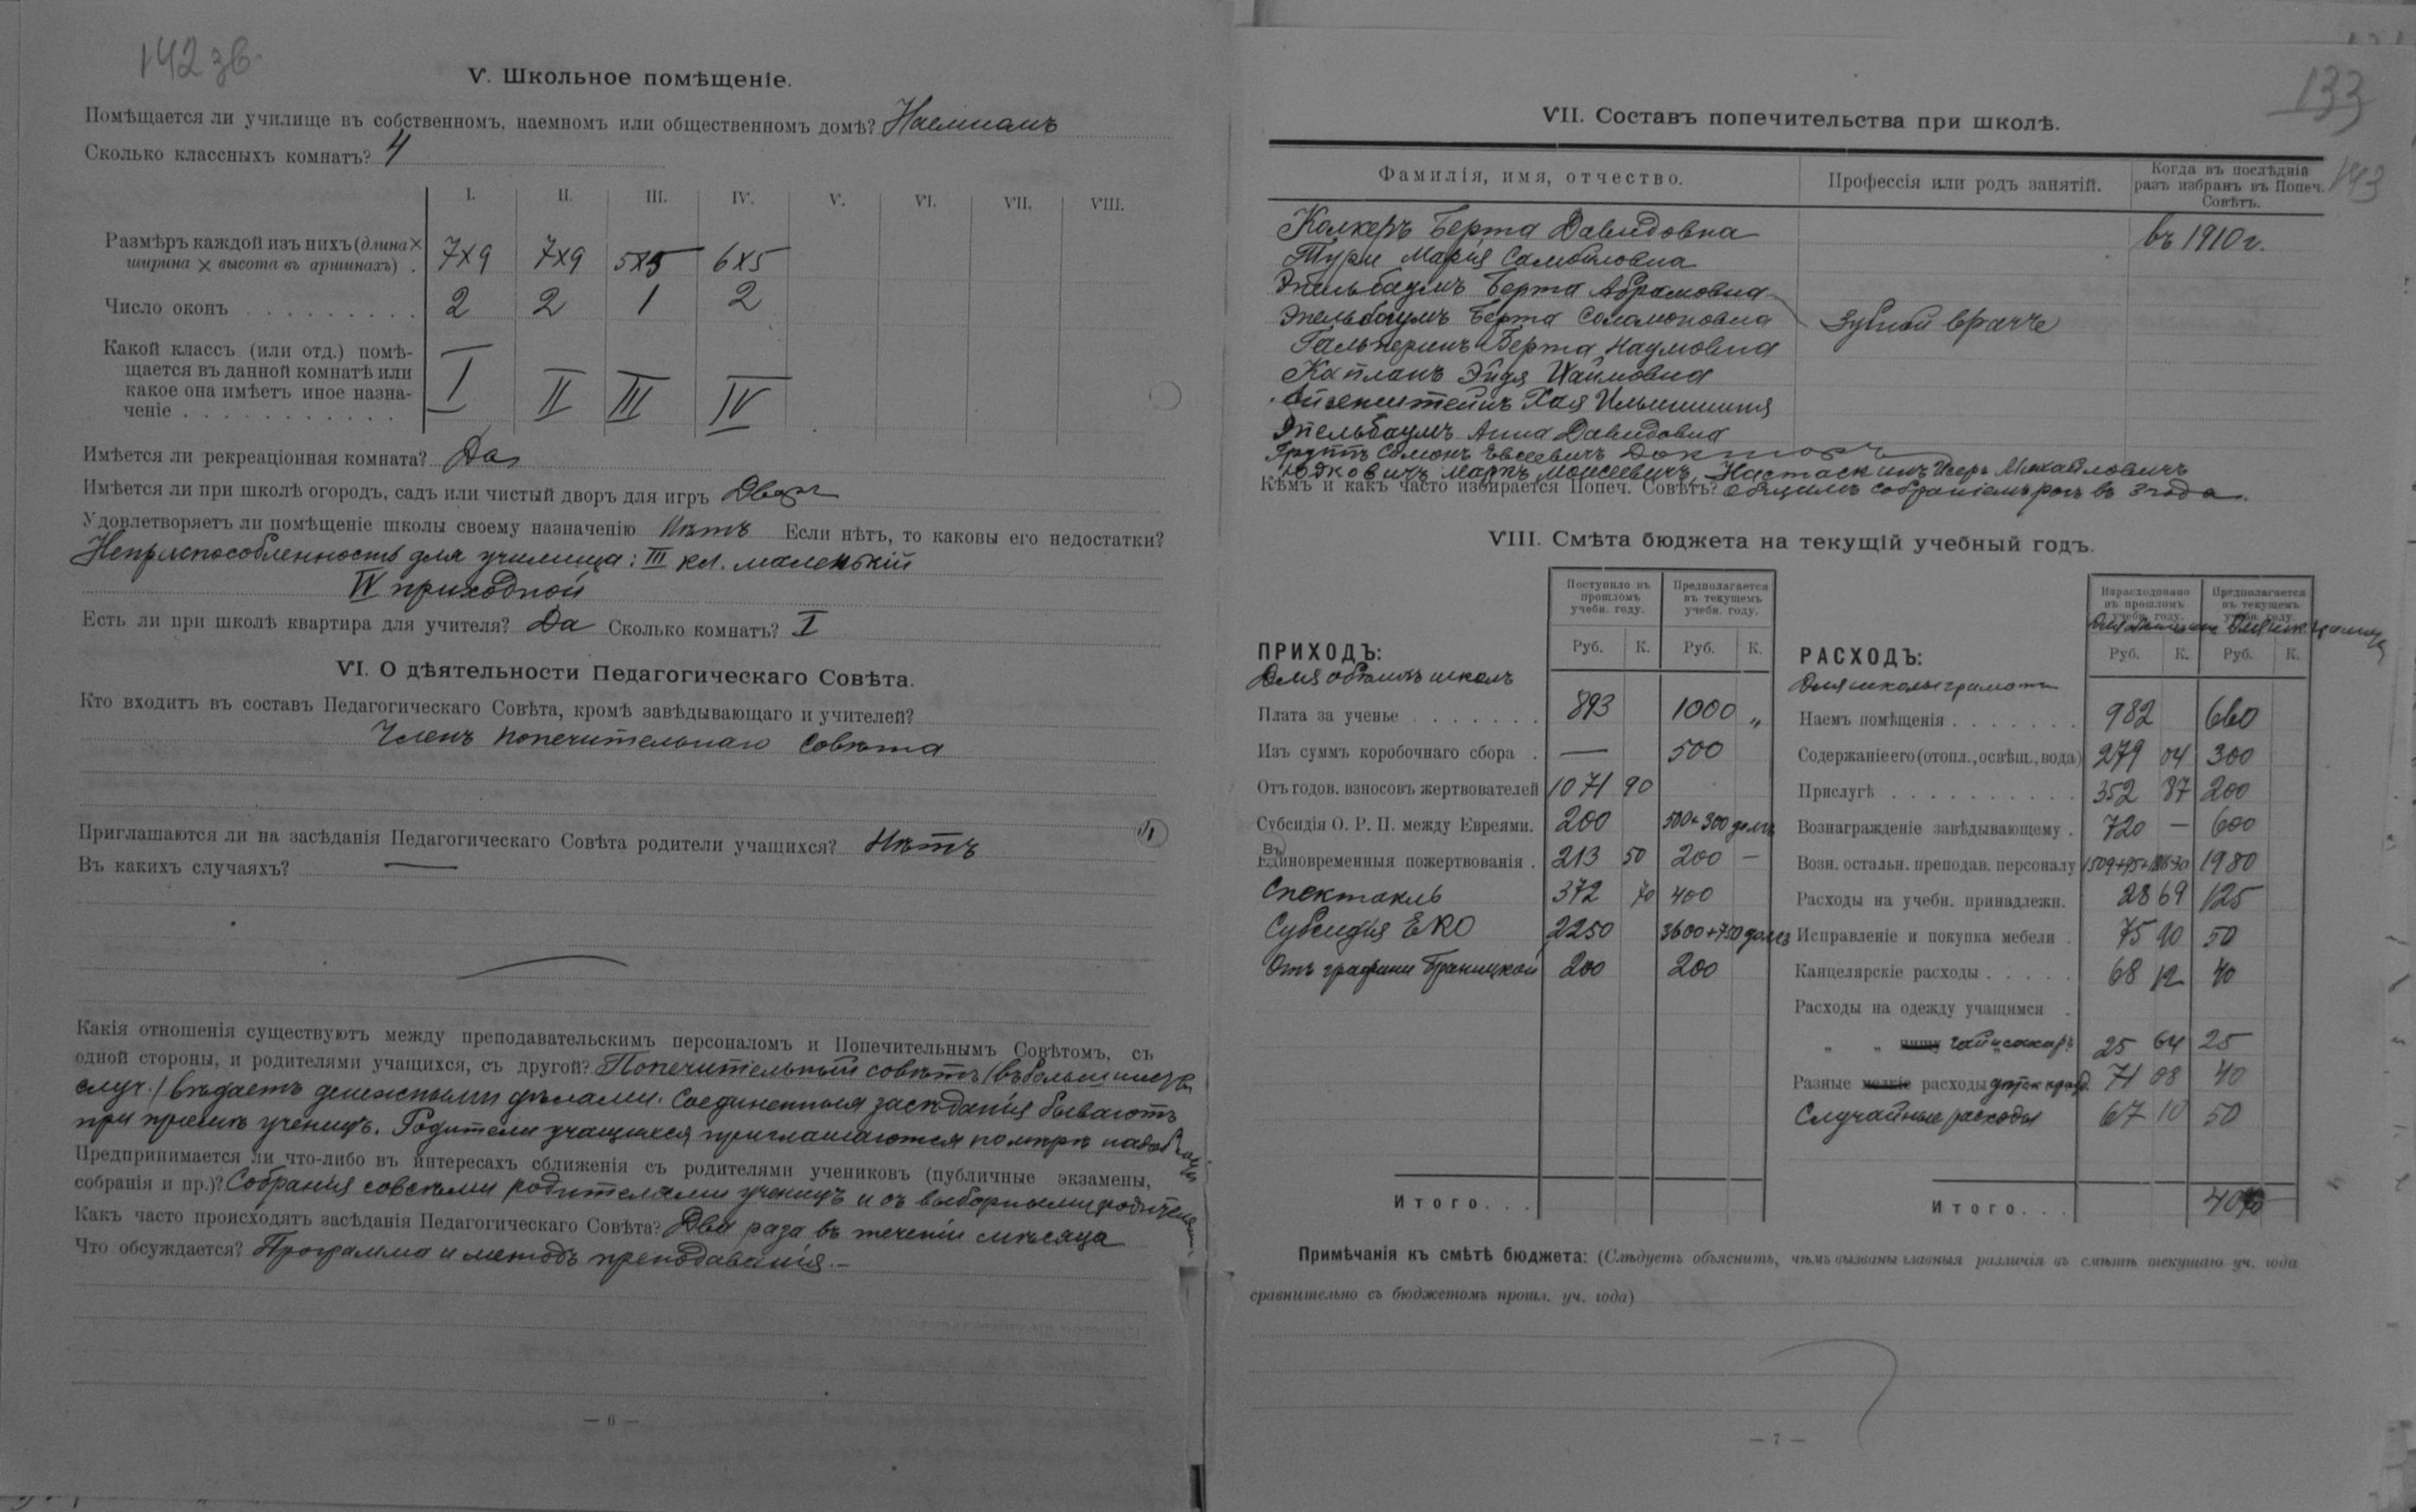 142 зв.
V. Школьное помѣщеніе.
Помѣщается ли училище въ собственномъ, наемномъ или общественномъ домѣ? Наемномъ
Сколько классныхъ комнатъ? 4
I. II. III. IV. V. VI. VII. VIII.
Размѣръ каждой изъ нихъ (длина × ширина × высота въ аршинахъ) . 7×9 7×9 5×5 6×5
Число оконъ . . . . . . . . . 2 2 1 2
Какой классъ (или отд.) помѣ-
щается въ данной комнатѣ или
какое она имѣетъ иное назна-
ченіе . . . . . . . . . . . I II III IV
Имѣется ли рекреаціонная комната? Да
Имѣется ли при школѣ огородъ, садъ или чистый дворъ для игръ Дворъ
Удовлетворяетъ ли помѣщеніе школы своему назначенію Нѣтъ Если нѣтъ, то каковы его недостатки?
Неприспособленность для училища: III кл. маленькій
IV приходной
Есть ли при школѣ квартира для учителя? Да Сколько комнатъ? I
VI. О дѣятельности Педагогическаго Совѣта.
Кто входитъ въ составъ Педагогическаго Совѣта, кромѣ завѣдывающаго и учителей?
Членъ попечительнаго совѣта
Приглашаются ли на засѣданія Педагогическаго Совѣта родители учащихся? Нѣтъ
Въ какихъ случаяхъ? —
Какія отношенія существуютъ между преподавательскимъ персоналомъ и Попечительнымъ Совѣтомъ, съ
одной стороны, и родителями учащихся, съ другой? Попечительный совѣтъ (въ большинств.
случ.) вѣдаетъ денежными дѣлами. Соединенныя засѣданія бываютъ
при пріемѣ ученицъ. Родители учащихся приглашаются по мѣрѣ надобности
Предпринимается ли что-либо въ интересахъ сближенія съ родителями учениковъ (публичные экзамены,
собранія и пр.)? Собранія со всѣми родителями ученицъ и съ выборными родителями.
Какъ часто происходятъ засѣданія Педагогическаго Совѣта? Два раза въ теченіи мѣсяца
Что обсуждается? Программа и методъ преподаванія.—
— 6 —
133
143
VII. Составъ попечительства при школѣ.
Фамилія, имя, отчество. Профессія или родъ занятій. Когда въ послѣдній разъ избранъ въ Попеч. Совѣтъ.
Колкеръ Берта Давидовна въ 1910 г.
Марія Самойловна
Эпельбаумъ Берта Абрамовна
Эпельбаумъ Берта Соломоновна Зубной врачъ
Гальперинъ Берта Наумовна
Капланъ Эйдя Хаимовна
Айзенштейнъ Хая
Эпельбаумъ Анна Давидовна
Евсеевичъ Докторъ
Маркъ Моисеевичъ, Михайловичъ
Кѣмъ и какъ часто избирается Попеч. Совѣтъ? Общимъ собраніемъ разъ въ 3 года.
VIII. Смѣта бюджета на текущій учебный годъ.
Поступило въ прошломъ учебн. году. Предполагается въ текущемъ учебн. году.
Руб. К. Руб. К.
ПРИХОДЪ:
Для обѣихъ школъ
Плата за ученье . . . . . . . 893 1000 „
Изъ суммъ коробочнаго сбора . — 500
Отъ годов. взносовъ жертвователей 1071 90
Субсидія О. Р. П. между Евреями. 200 500+300 долгъ
Единовременныя пожертвованія . 213 50 200 —
Спектакль 372 70 400
Субсидія ЕКО 2250 3600+750 долгъ
Отъ графини Браницкой 200 200
Итого. . .
Израсходовано въ прошломъ учебн. году. Предполагается въ текущемъ учебн. году.
Руб. К. Руб. К.
РАСХОДЪ:
Для школы грамоты
Наемъ помѣщенія . . . . . . . 982 660
Содержаніе его (отопл., освѣщ., вода) 279 04 300
Прислугѣ . . . . . . . . . . 352 87 200
Вознагражденіе завѣдывающему . 720 — 600
Возн. остальн. преподав. персоналу 1980
Расходы на учебн. принадлежн. 28 69 125
Исправленіе и покупка мебели . 75 90 50
Канцелярскіе расходы . . . . . 68 12 40
Расходы на одежду учащимся .
„ „ пищу чай и сахаръ 25 64 25
Разные мелкіе расходы 71 08 40
Случайные расходы 67 10 50
Итого. . . 4070
Примѣчанія къ смѣтѣ бюджета: (Слѣдуетъ объяснить, чѣмъ вызваны главныя различія въ смѣтѣ текущаго уч. года
сравнительно съ бюджетомъ прошл. уч. года)
— 7 —